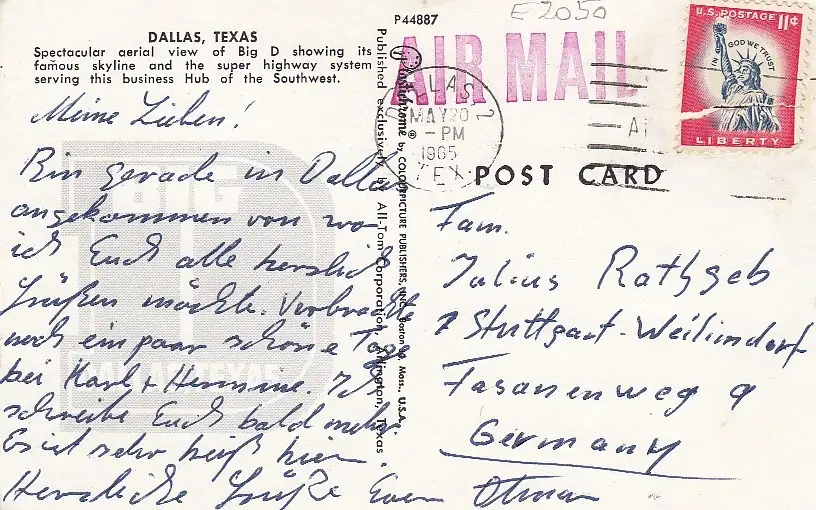 P44887
E2050
DALLAS, TEXAS
Spectacular aerial view of Big D showing its
famous skyline and the super highway system
serving this business Hub of the Southwest.
AIR MAIL
DALLAS 2
MAY 20
-PM
1965
TEX
U.S. POSTAGE 11¢
IN GOD WE TRUST
LIBERTY
POST CARD
Plastichrome ® by COLOURPICTURE PUBLISHERS, INC. Boston 30, Mass., U.S.A.
Published exclusively by All-Tom Corporation, Arlington, Texas
BIG
D
DALLAS, TEXAS
Meine Lieben!
Bin gerade in Dallas
angekommen von wo
ich Euch alle herzlich
Grüßen möchte. Verbrachte
noch ein paar schöne Tage
bei Karl + Hermine. Ich
schreibe Euch bald mehr.
Es ist sehr heiß hier.
Herzliche Grüße Euer Otmar
Fam.
Julius Rathgeb
7 Stuttgart-Weilimdorf
Fasanenweg 9
Germany